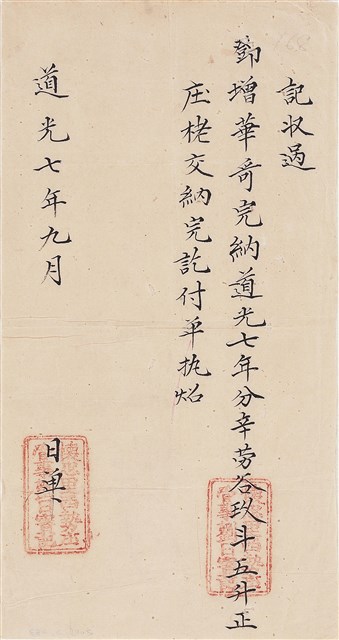 記収過
鄧增華哥完納道光七年分辛劳谷玖斗五升正
庄栳交納完訖付单执炤
道光七年九月　日單